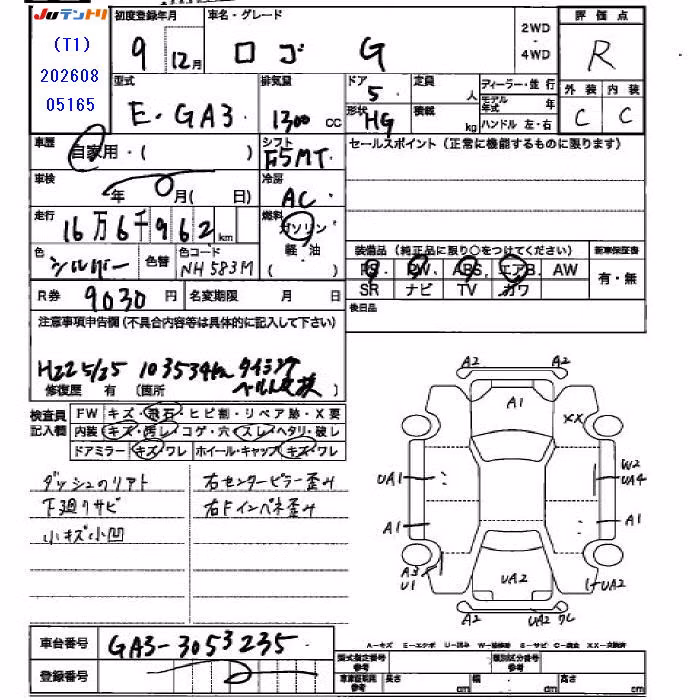 JUテントリ
(T1)
202608
05165
初度登録年月
9 12月
車名・グレード
ロゴ G
2WD
・
4WD
評価点
R
型式
E・GA3
排気量
1300 cc
ドア
5
定員
人
形状
HG
積載
kg
ディーラー・並行
モデル年式 年
ハンドル 左・右
外装 内装
C C
車歴
自家用・( )
シフト
F5MT
セールスポイント(正常に機能するものに限ります)
車検
年 月( 日)
冷房
AC
走行
16万6千962km
燃料
ガソリン
軽・油
( )
色
シルバー
色替
色コード
NH583M
装備品(純正品に限り○をつけてください)
新車保証書
PS PW ABS エアB AW
SR ナビ TV カワ
有・無
R券 9030 円
名変期限 月 日
後日品
注意事項申告欄(不具合内容等は具体的に記入して下さい)
H22 5/25 103534km タイミング
ベルト交換
修復歴 有 (箇所 )
検査員
記入欄
FW キズ・飛石・ヒビ割・リペア跡・X要
内装 キズ・汚レ・コゲ・穴・スレ・ヘタリ・破レ
ドアミラー キズ・ワレ ホイール・キャップ キズ・ワレ
ダッシュのリアト
下廻りサビ
小キズ小凹
右センターピラー歪み
右Fインペネ歪み
A2 A2
A1
XX
UA1
W2
UA4
A1
A1
A3
U1
UA2
UA2
A2
UA2 ワレ
車台番号 GA3-3053235
登録番号
A-キズ E-エクボ U-凹み W-補修跡 S-サビ C-腐食 XX-交換済
型式指定番号
参考
類別区分番号
参考
車体寸法
参考
長さ cm 幅 cm 高さ cm